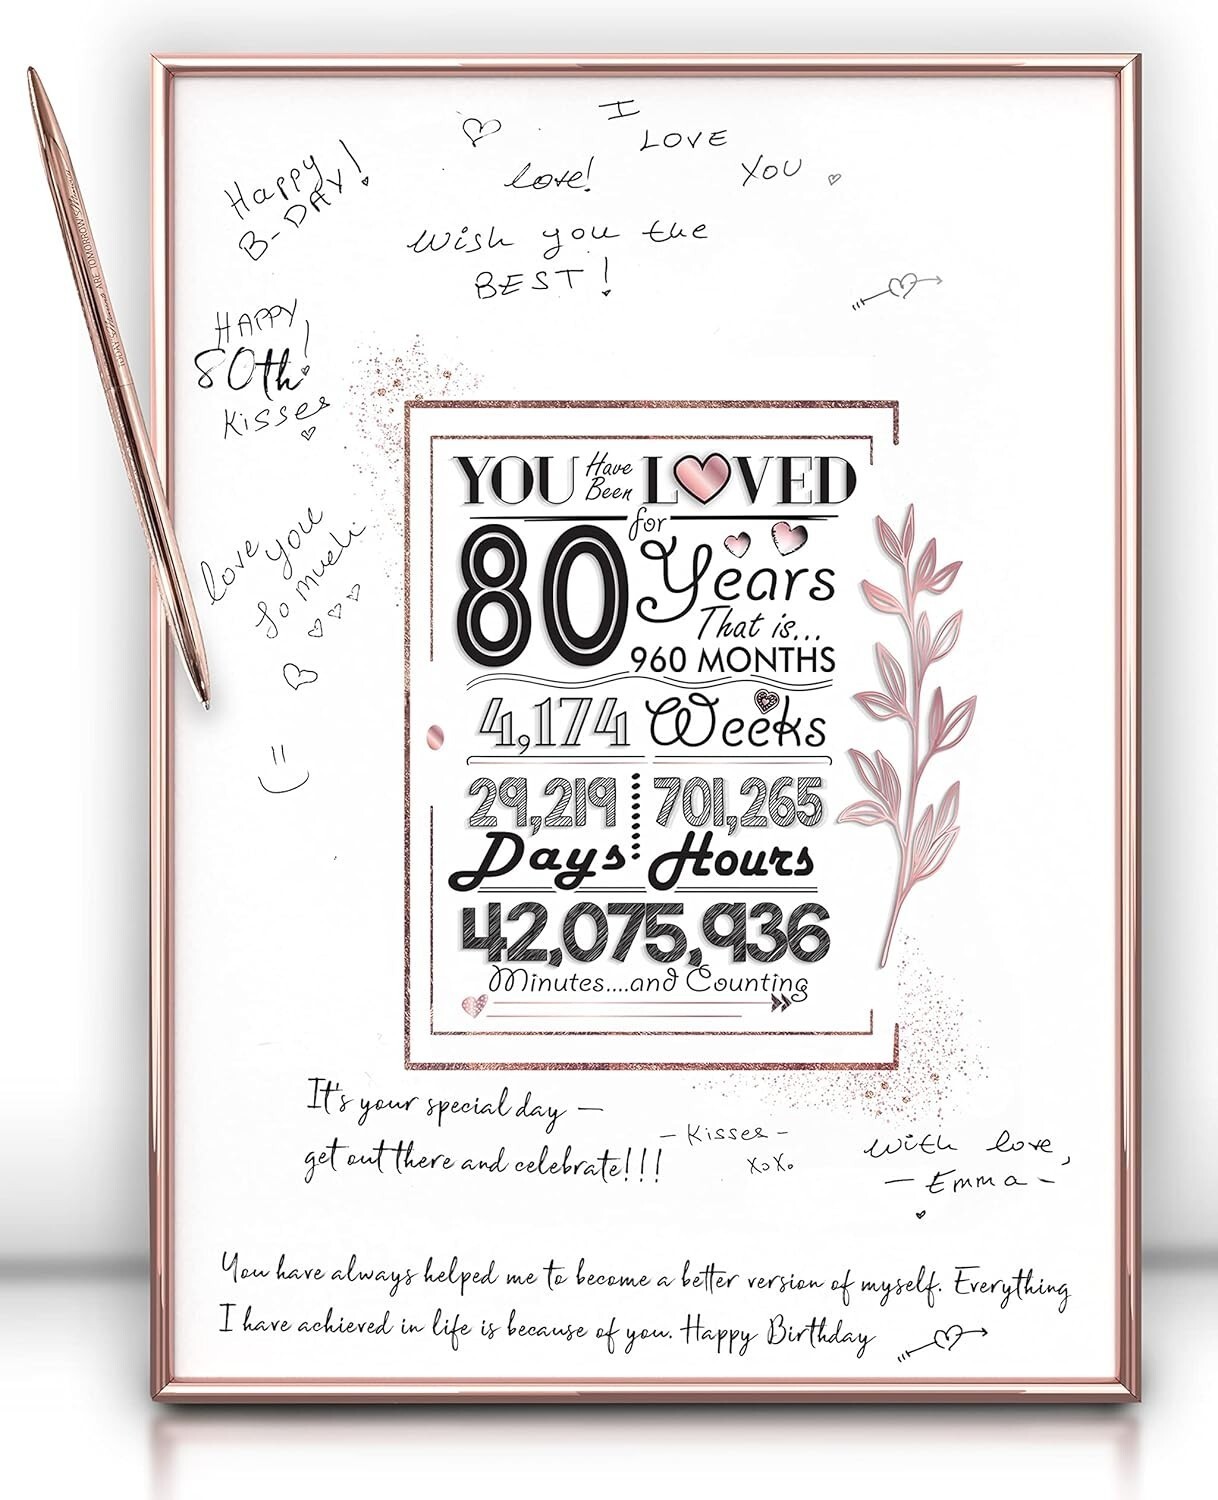 I
LOVE
YOU
love!
Happy
B-DAY!
Wish you the
BEST!
HAPPY!
80th
Kisses
love you
so much
YOU Have Been LOVED
for
80 Years
That is...
960 MONTHS
4,174 Weeks
29,219 701,265
Days Hours
42,075,936
Minutes....and Counting
It's your special day –
get out there and celebrate!!!
- Kisses -
XoXo
With love,
- Emma -
You have always helped me to become a better version of myself. Everything
I have achieved in life is because of you. Happy Birthday